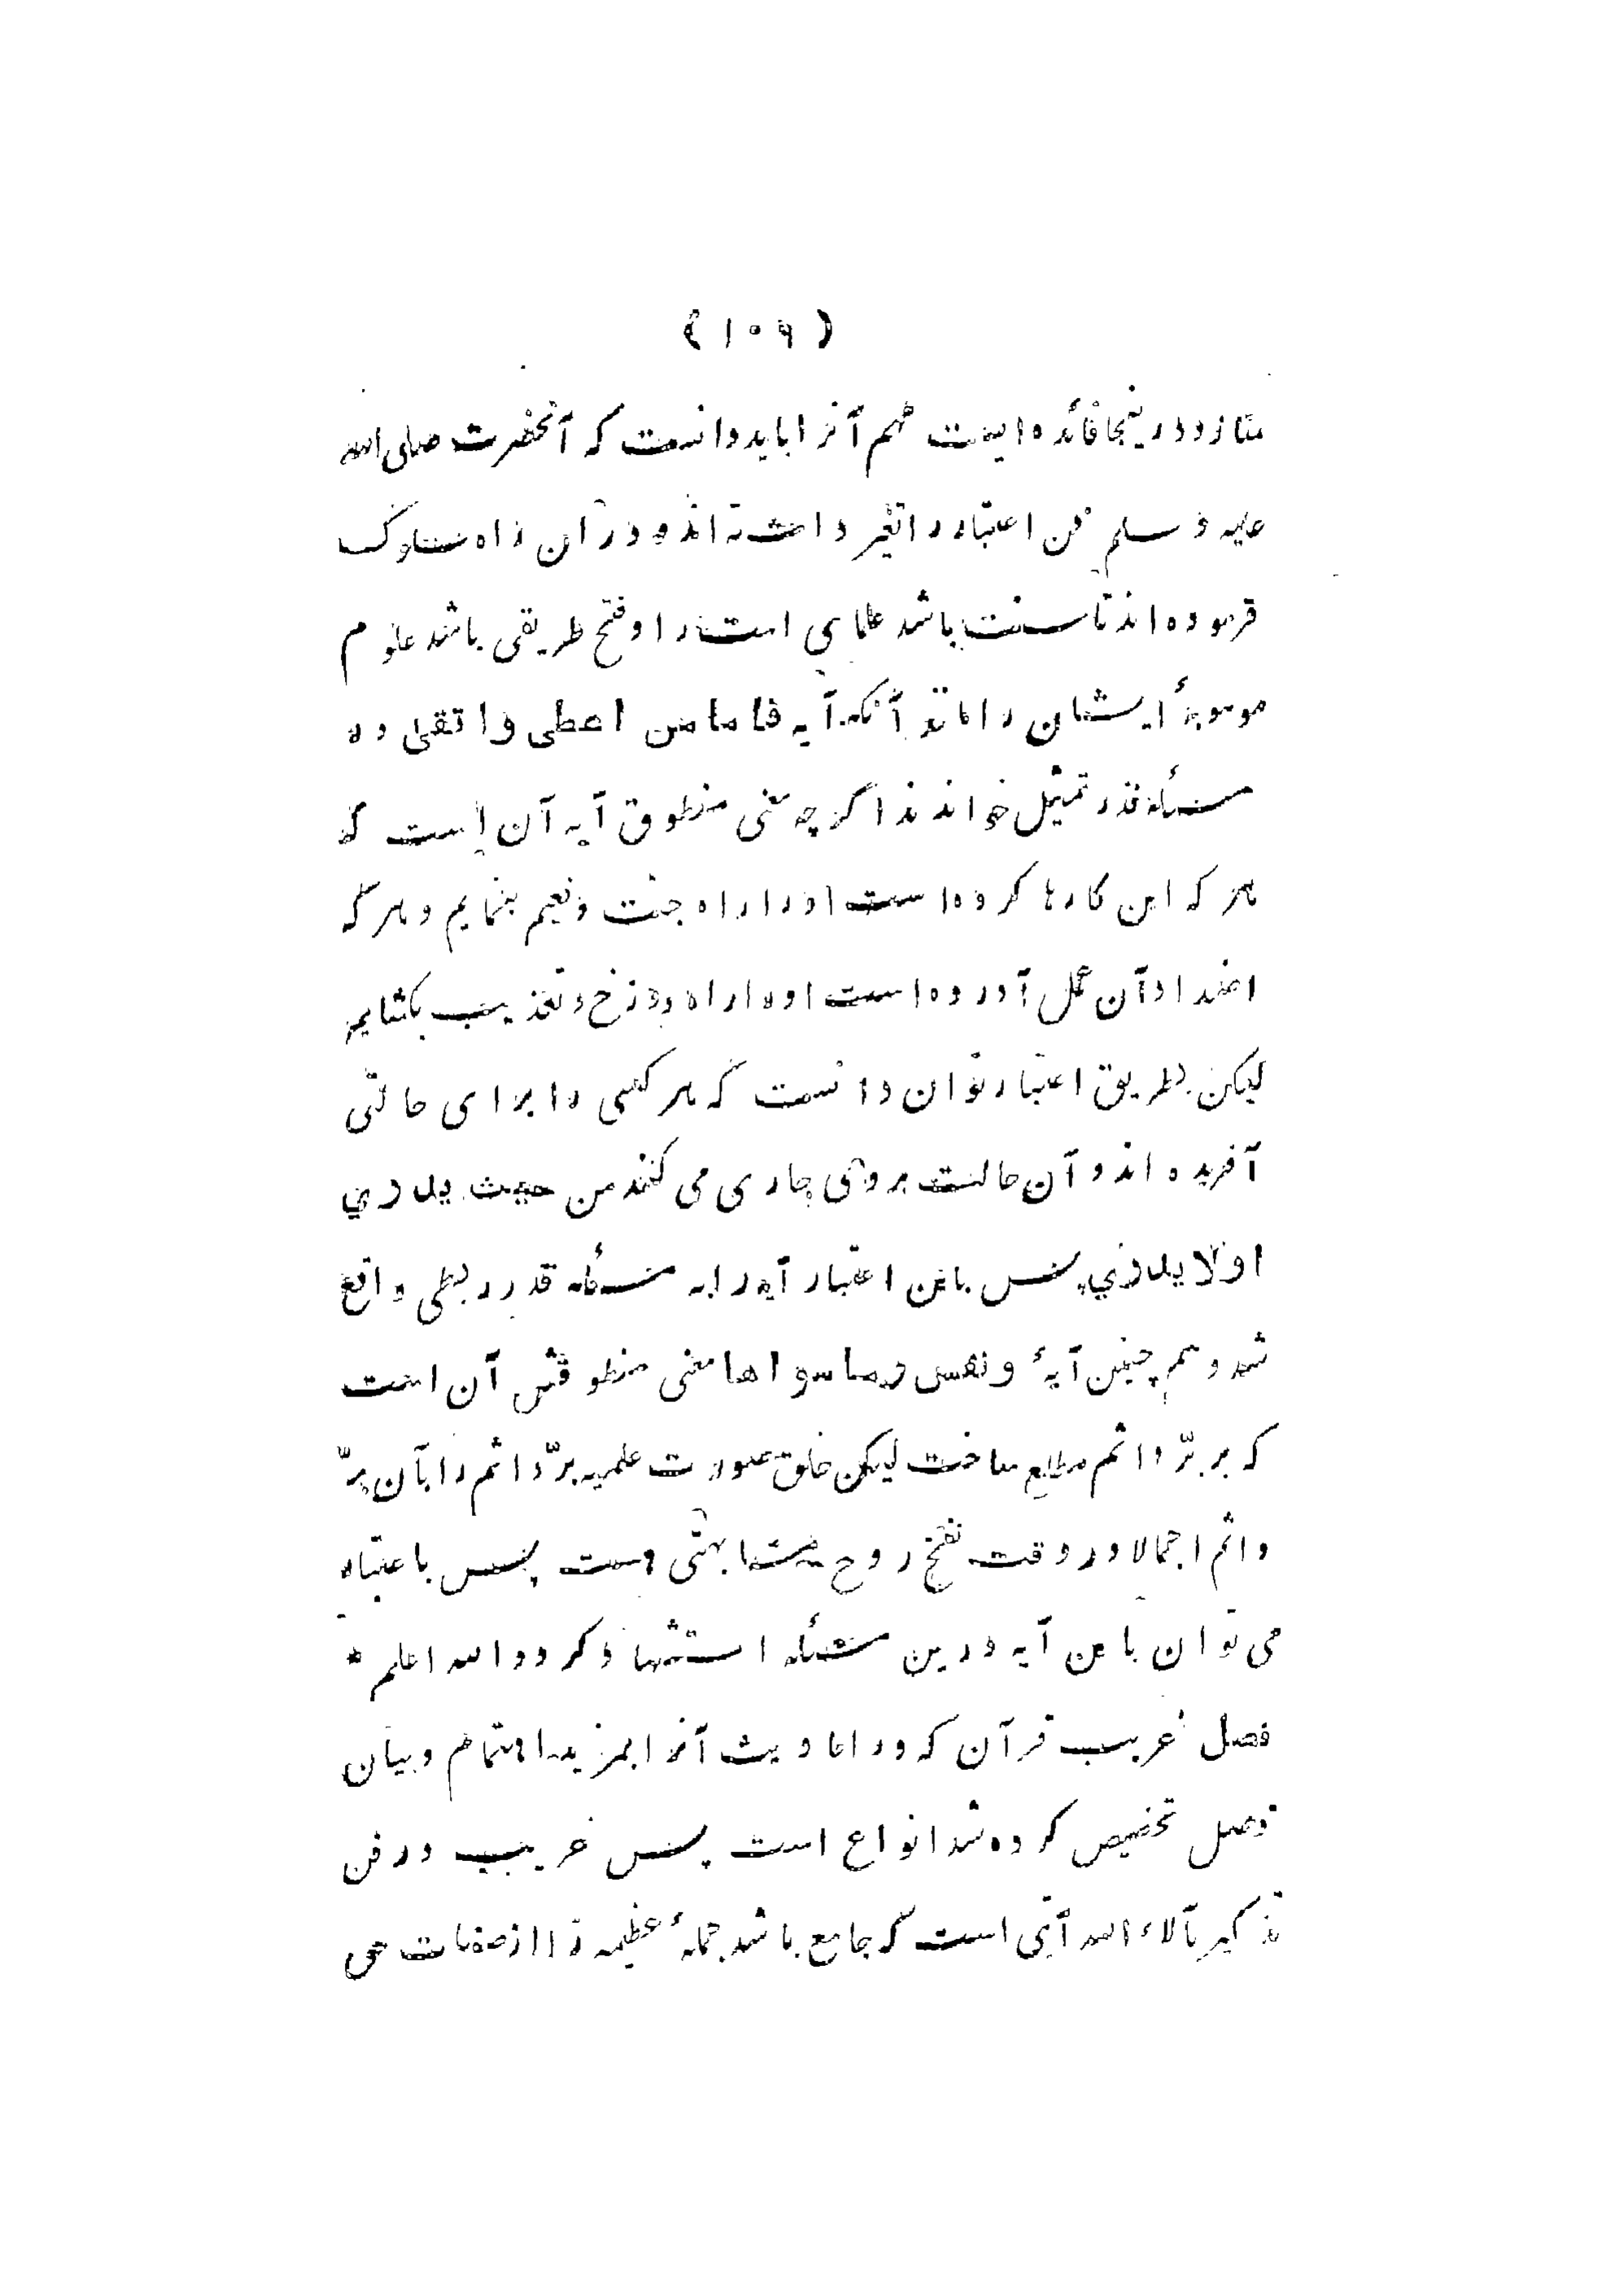 (۱۰۹)
متازد و درینجا فائده ایست مهم آنرا باید دانست که آنحضرت صلی الله
علیه و سلم فن اعتبار را معتبر داشته اند و در آن راه سلوک
فرموده اند تا سنت باشد علمای امت را و فتح طریقی باشد علوم
موهوبهٔ ایشان را مانند آنکه آیه فاما من اعطی واتقی در
مسئله قدر تمثیل خواندند اگرچه معنی منطوق آیه آن است که
هر که این کارها کرده است او را راه جنت و نعیم بنمایم و هر که
اضداد آن عمل آورده است او را راه دوزخ و تعذیب بکشایم
لیکن بطریق اعتبار توان دانست که هر کسی را برای حالتی
آفریده اند و آن حالت بروی جاری می کنند من حیث یدري
اولا یدري پس باین اعتبار آیه را به مسئله قدر ربطی واقع
شد و هم چنین آیهٔ ونفس وماسواها معنی منطوقش آن است
که بر برّ و اثم مطلع ساخت لیکن خلق صورت علمیه برّ و اثم را بآن برّ
و اثم اجمالا در وقت نفخ روح مشابهتی هست پس باعتبار
می توان باین آیه درین مسئله استشهاد کرد والله اعلم *
فصل غریب قرآن که در احادیث آنرا بمزید اهتمام و بیان
فصل تخصیص کرده شد انواع است پس غریب در فن
تذکیر بآلاء الله آیتی است که جامع باشد جملهٔ عظیمه را از صفات حق